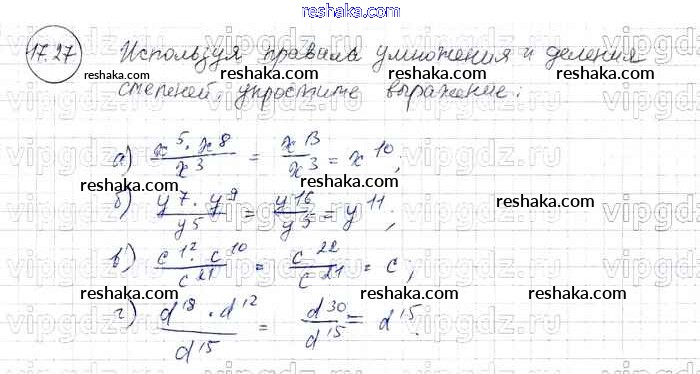 17.27 Используя правила умножения и деления
степеней, упростите выражение:
а) x^5 · x^8 / x^3 = x^13 / x^3 = x^10;
б) y^7 · y^9 / y^5 = y^16 / y^5 = y^11;
в) c^12 · c^10 / c^21 = c^22 / c^21 = c;
г) d^18 · d^12 / d^15 = d^30 / d^15 = d^15.
reshaka.com
reshaka.com
reshaka.com
reshaka.com
reshaka.com
reshaka.com
reshaka.com
reshaka.com
reshaka.com
reshaka.com
reshaka.com
reshaka.com
reshaka.com
reshaka.com
vipgdz.ru